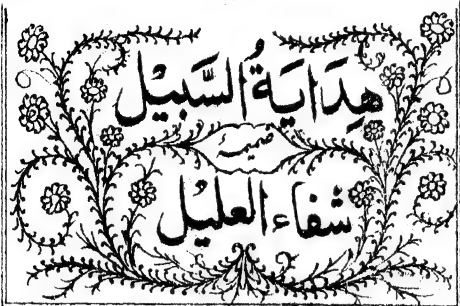 هِدَايَةُ السَّبِيْل
ضمیمہ
شفاء العلیْل